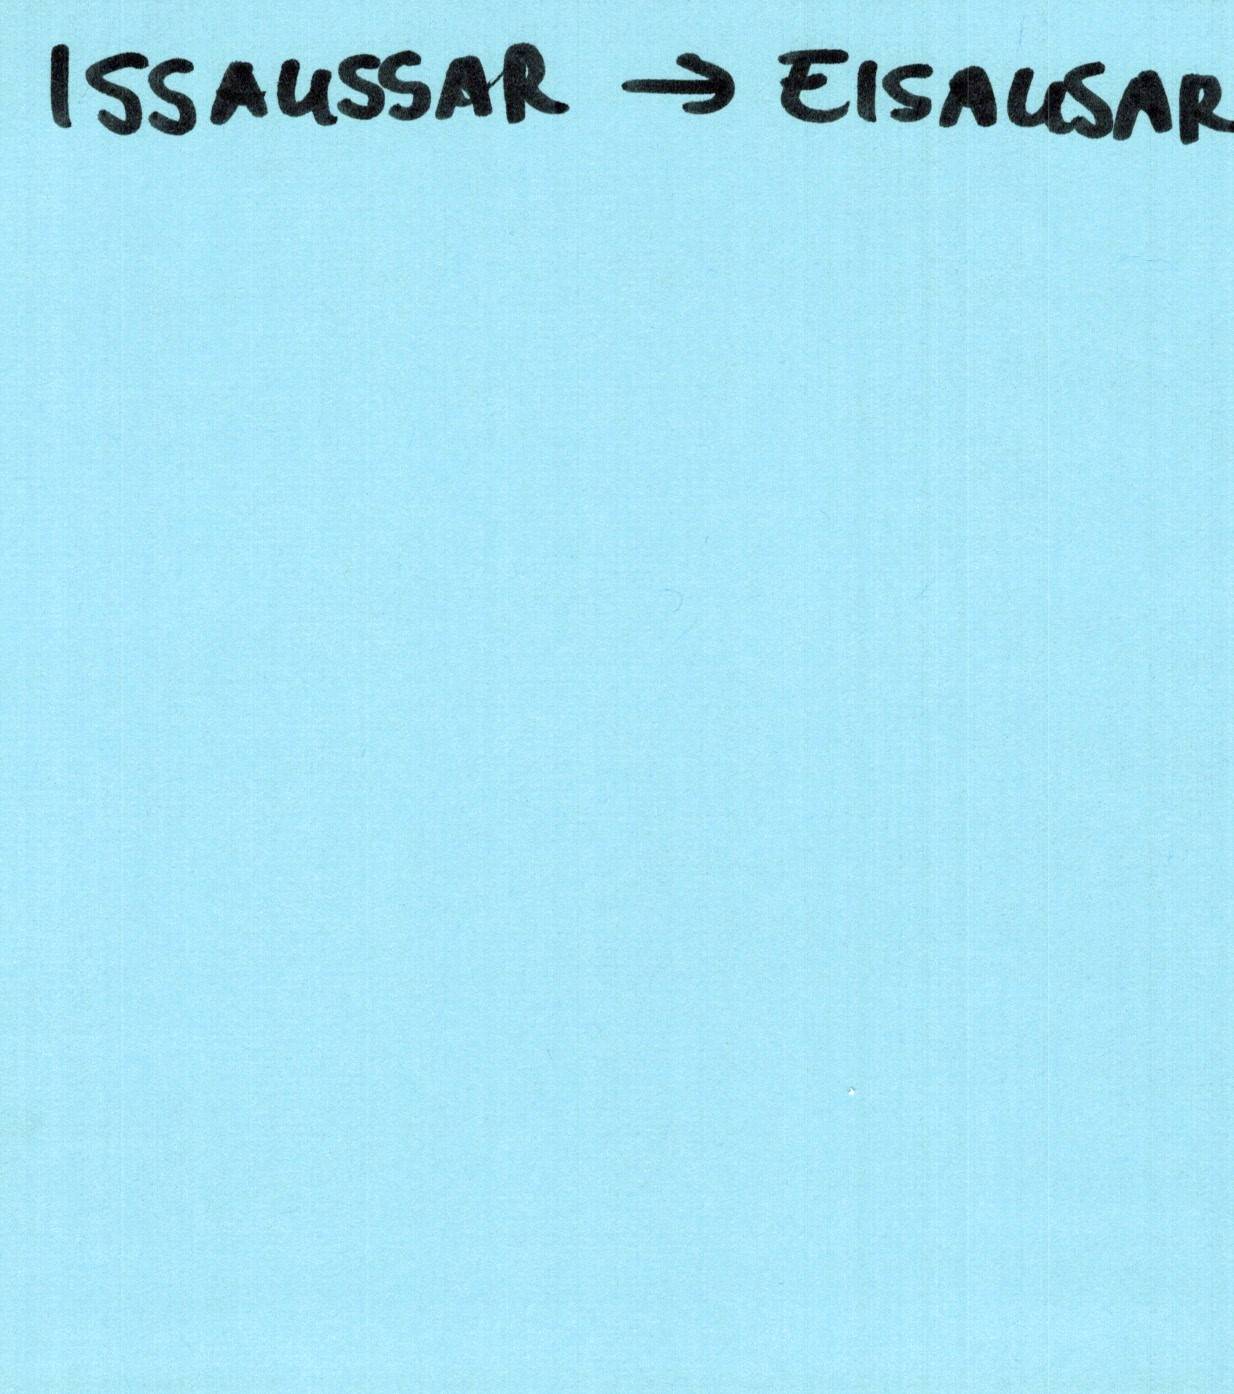 ISSAUSSAR → EISAUSAR